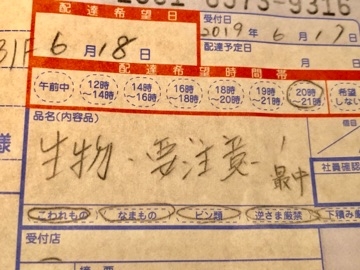 配達希望日 受付日
31F 6月18日 2019年6月17日
配達予定日
配達希望時間帯
午前中 12時～14時 14時～16時 16時～18時 18時～20時 19時～21時 20時～21時 希望しない
品名(内容品)
様 生物・要注意!
最中
社員確認
こわれもの なまもの ビン類 逆さま厳禁 下積み
受付店
摘要